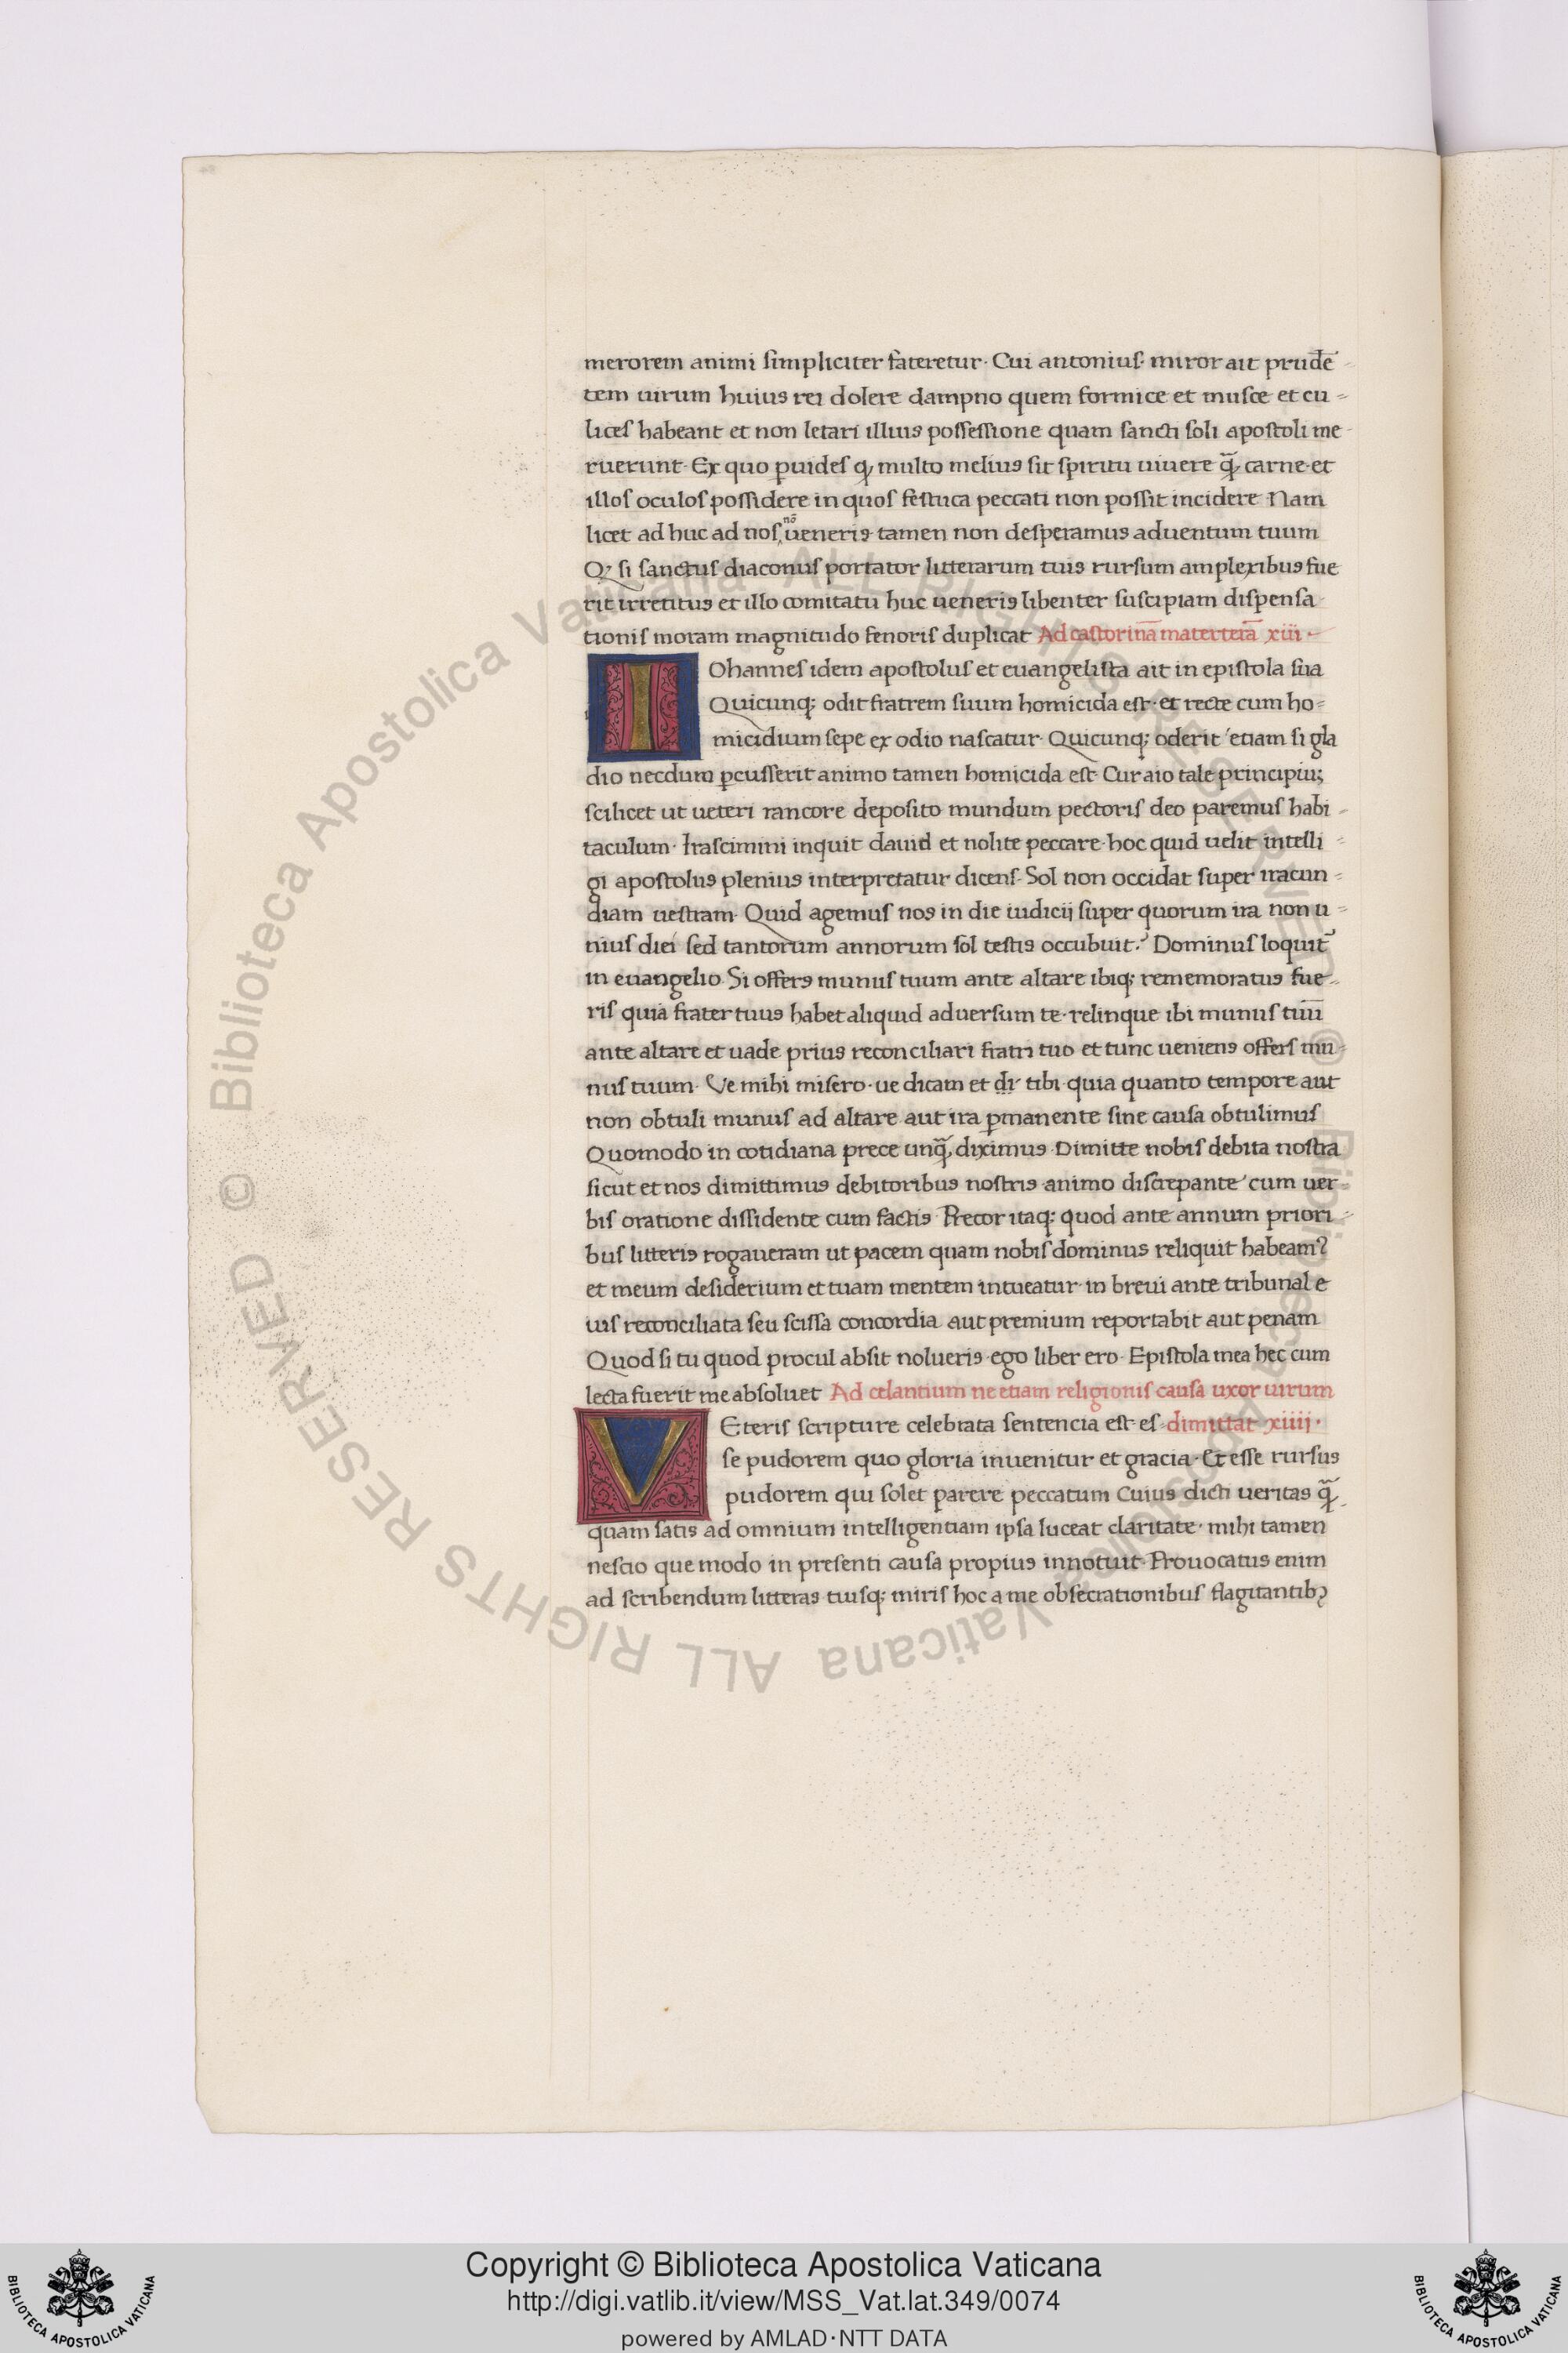 merorem animi simpliciter fateretur· Cui antonius· miror ait prudē-
tem uirum huius rei dolere dampno quem formice et musce et cu-
lices habeant et non letari illius possessione quam sancti soli apostoli me-
ruerunt· Ex quo ꝑuides ꝙ multo melius sit spiritu uiuere q̄ꝫ carne· et
illos oculos possidere in quos festuca peccati non possit incidere Nam
licet ad huc ad nos nō ueneris tamen non desperamus aduentum tuum
Qꝫ si sanctus diaconus portator litterarum tuis rursum amplexibus fue
rit irretitus et illo comitatu huc ueneris libenter suscipiam dispensa
tionis moram magnitudo fenoris duplicat Ad castorinā materterā xiii·
IOhannes idem apostolus et euangelista ait in epistola sua
Quicunqꝫ odit fratrem suum homicida est· et recte cum ho-
micidium sepe ex odio nascatur· Quicunqꝫ oderit etiam si gla
dio necdum ꝑcusserit animo tamen homicida est Cur aio tale principiūꝫ
scilicet ut ueteri rancore deposito mundum pectoris deo paremus habi-
taculum· Irascimini inquit dauid et nolite peccare· hoc quid uelit intelli-
gi apostolus plenius interpretatur dicens· Sol non occidat super iracun-
diam uestram· Quid agemus nos in die iudicij super quorum ira non u-
nius diei sed tantorum annorum sol testis occubuit? Dominus loquit᷑
in euangelio· Si offers munus tuum ante altare ibiqꝫ rememoratus fue-
ris quia frater tuus habet aliquid aduersum te· relinque ibi munus tuū
ante altare et uade prius reconciliari fratri tuo et tunc ueniens offers mu-
nus tuum· Ve mihi misero· ue dicam et dr̄ tibi quia quanto tempore aut
non obtuli munus ad altare aut ira ꝑmanente sine causa obtulimus
Quomodo in cotidiana prece unq̄ꝫ diximus· Dimitte nobis debita nostra
sicut et nos dimittimus debitoribus nostris animo discrepante cum uer-
bis oratione dissidente cum factis Precor itaqꝫ quod ante annum priori-
bus litteris rogaueram ut pacem quam nobis dominus reliquit habeamꝰ
et meum desiderium et tuam mentem intueatur· in breui ante tribunal e
ius reconciliata seu scissa concordia aut premium reportabit aut penam
Quod si tu quod procul absit nolueris· ego liber ero· Epistola mea hec cum
lecta fuerit me absoluet Ad celantium ne etiam religionis causa uxor uirum
VEteris scripture celebrata sentencia est es- dimittat xiiij·
se pudorem quo gloria inuenitur et gracia· Et esse rursus
pudorem qui solet parere peccatum Cuius dicti ueritas q̄ꝫ
quam satis ad omnium intelligentiam ipsa luceat claritate· mihi tamen
nescio que modo in presenti causa propius innotuit· Prouocatus enim
ad scribendum litteras tuisqꝫ miris hoc a me obsecrationibus flagitantibꝫ
© Biblioteca Apostolica Vaticana ALL RIGHTS RESERVED © Biblioteca Apostolica Vaticana ALL RIGHTS RESERVED
Copyright © Biblioteca Apostolica Vaticana
http://digi.vatlib.it/view/MSS_Vat.lat.349/0074
powered by AMLAD·NTT DATA
BIBLIOTECA APOSTOLICA VATICANA
BIBLIOTECA APOSTOLICA VATICANA